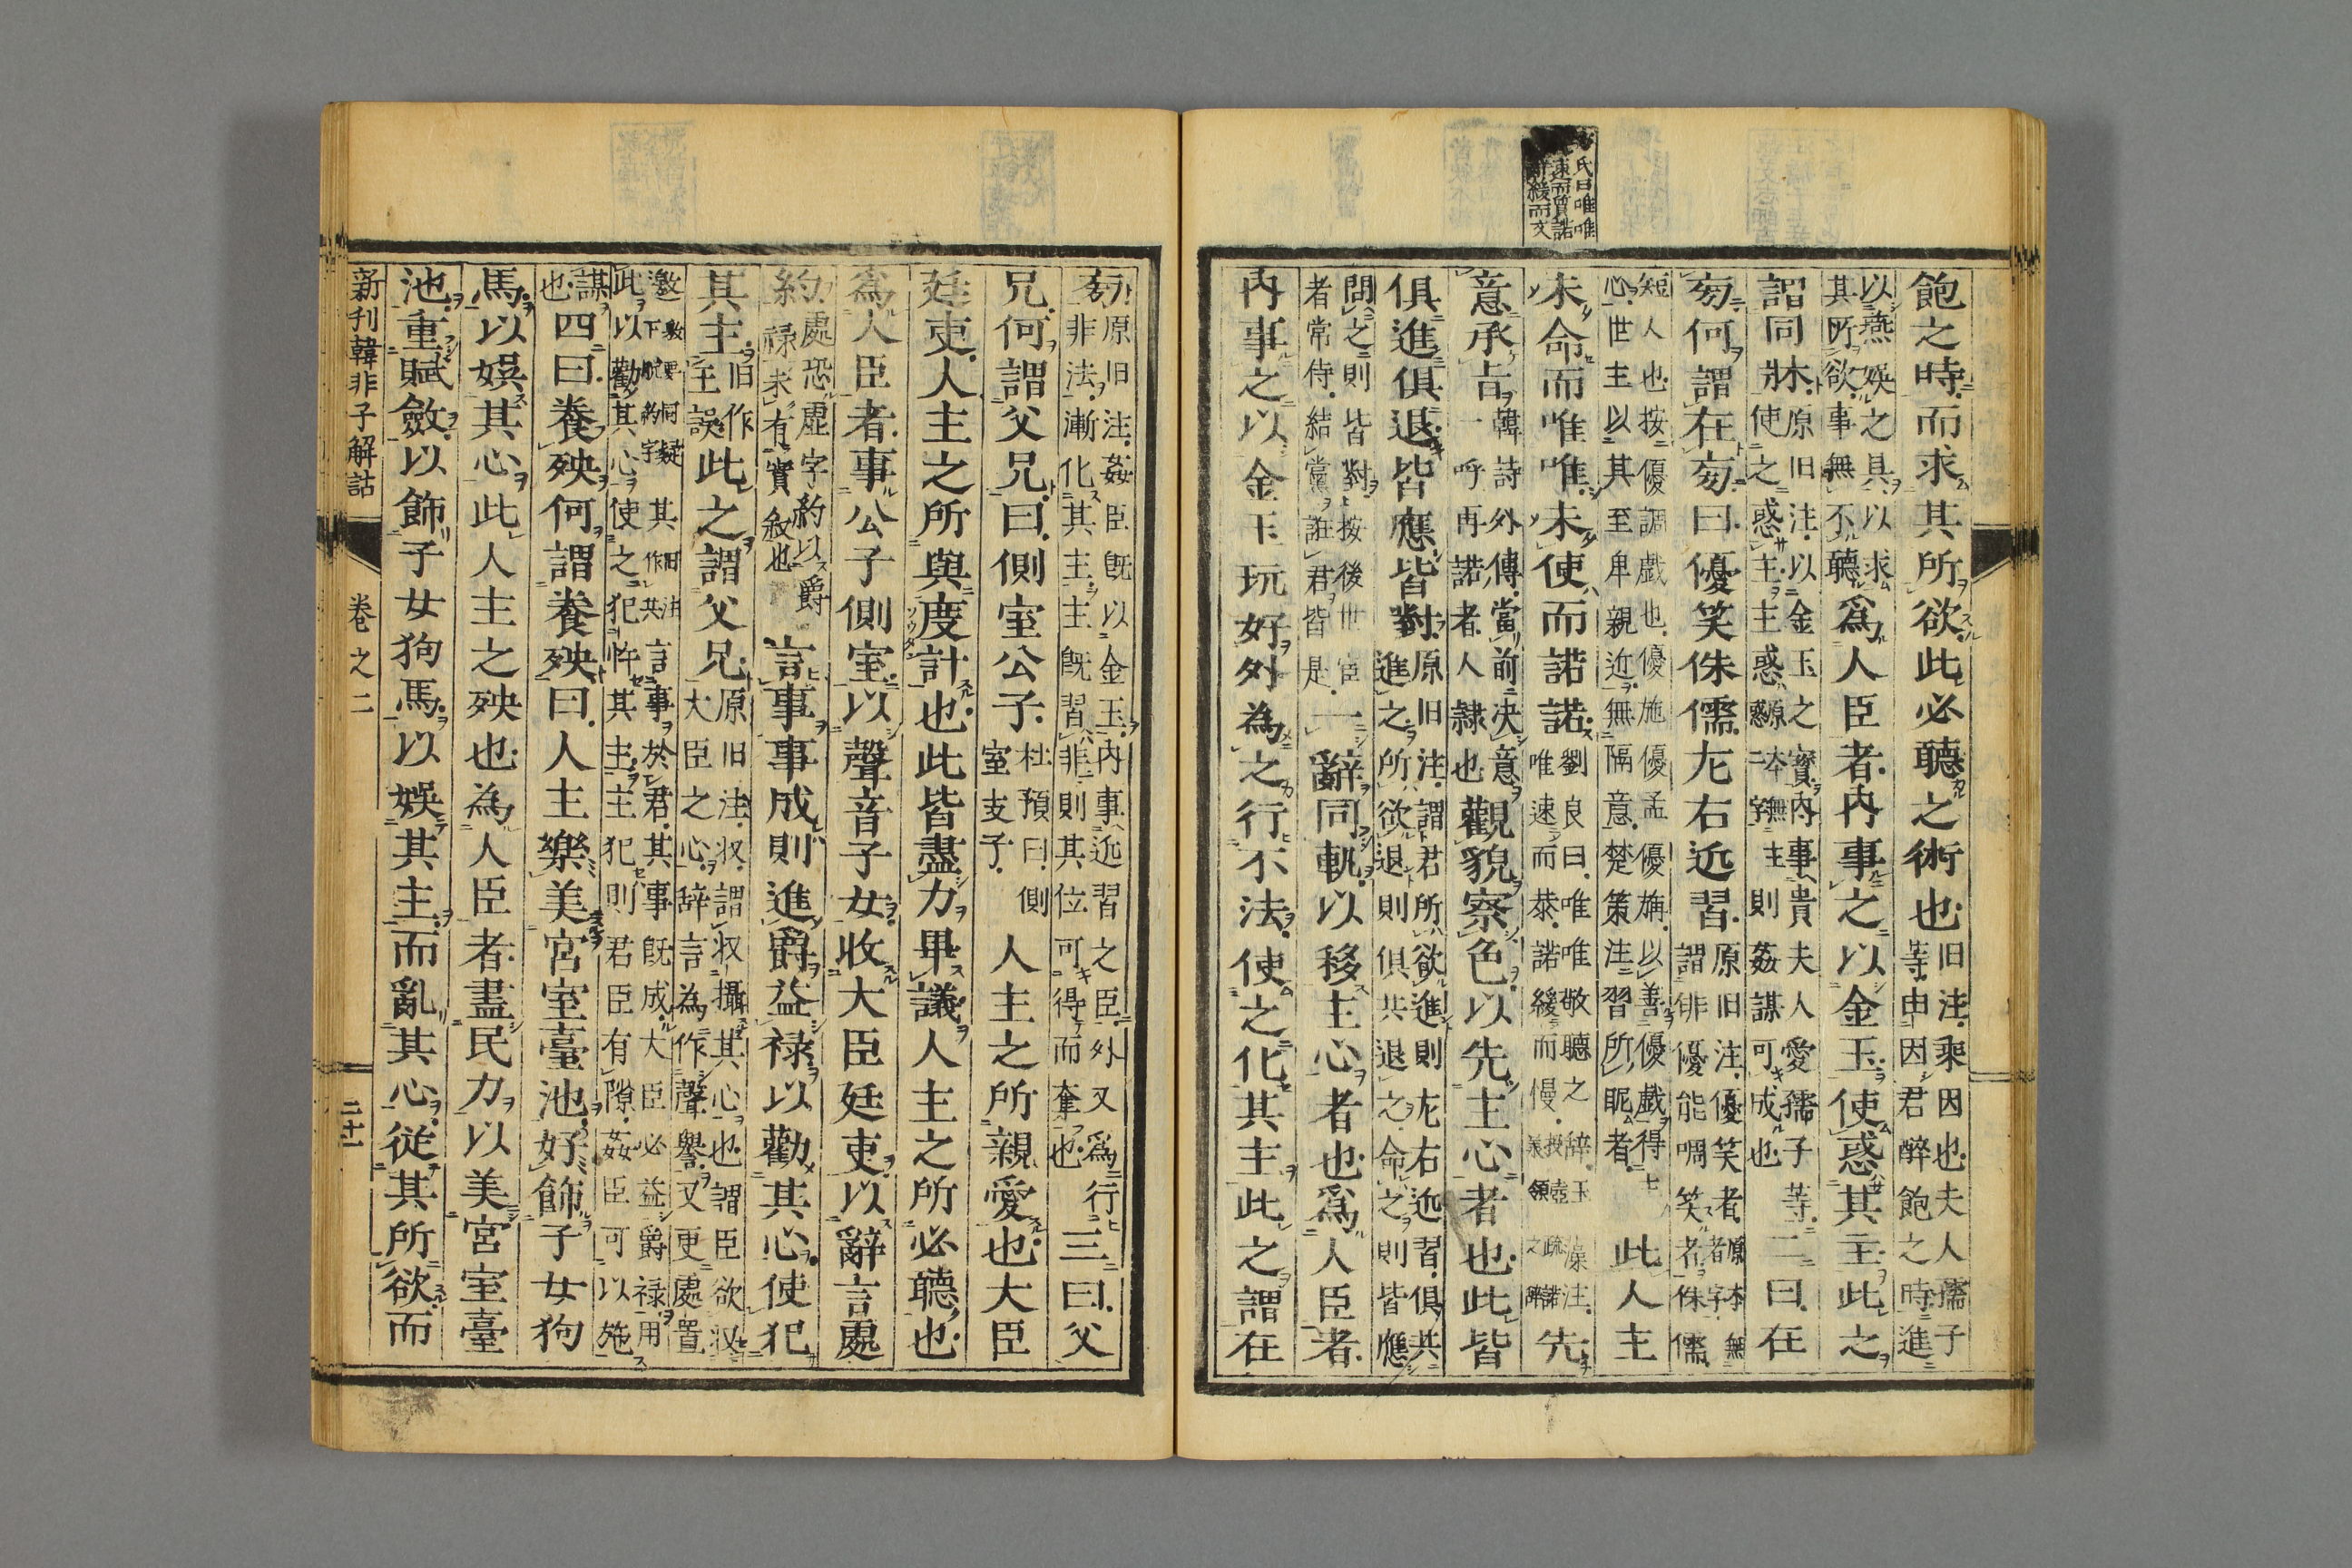 氏曰唯唯
速而質諾
辭緩而文
飽之時而求其所欲此必聽之術也旧注乘因也夫人孺子等由因君醉飽之時進
以燕娛之具以求其所欲事無不聽爲人臣者內事之以金玉使惑其主此之
謂同牀原旧注以金玉之寳內事貴夫人愛孺子等使之惑主主惑原本無主惑二字則姦謀可成也二曰在
旁何謂在旁曰優笑侏儒左右近習原旧注優笑者原本無者字謂俳優能啁笑者侏儒
短人也按優調戲也優施優孟優旃以善優戲得上心世主以其至卑親近無隔意楚策注習所昵者此人主
未命而唯唯未使而諾諾劉良曰唯唯敬聽之辞玉藻注唯速而恭諾緩而慢先
意承旨韓詩外傳當前决意一呼再諾者人隷也觀貌察色以先主心者也此皆
俱進俱退皆應皆對原旧注謂君所欲進則左右近習俱共進之所欲退則俱共退之命之則皆應
問之則皆對按後世宦者常侍結黨誑君皆是一辭同軌以移主心者也爲人臣者
內事之以金玉玩好外為之行不法使之化其主此之謂在
旁原旧注姦臣旣以金玉內事近習之臣外又爲行非法漸化其主主旣習非則其位可得而奪也三曰父
兄何謂父兄曰側室公子杜預曰側室支子人主之所親愛也大臣
廷吏人主之所與度計也此皆盡力畢議人主之所必聽也
爲人臣者事公子側室以聲音子女收大臣廷吏以辭言處
約處恐虛字約以爵禄未有實效也言事事成則進爵益禄以勸其心使犯
其主旧作主誤此之謂父兄原旧注收謂收攝其心也謂臣欲收大臣之心辞言為作聲譽又更處置
此以勸其心使之犯忤其主主犯則君臣有隙姦臣可以施
謀也四曰養殃何謂養殃曰人主樂美宮室臺池好飾子女狗
馬以娯其心此人主之殃也為人臣者盡民力以美宮室臺
池重賦斂以飾子女狗馬以娯其主而亂其心從其所欲而
新刊韓非子解詁 卷之二 二十一